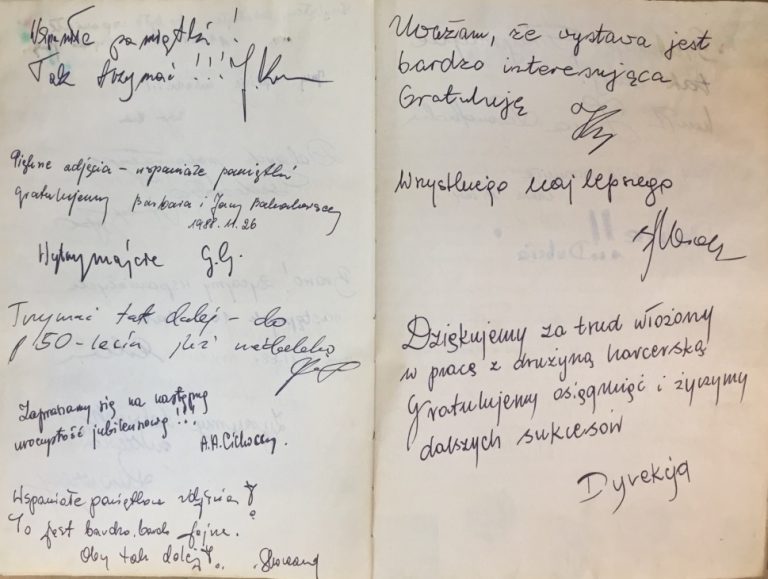 Wspaniałe pamiątki!
Tak trzymać!!!
Piękne zdjęcia – wspaniałe pamiątki
gratulujemy Barbara i Jerzy
1988.11.26
Wytrzymajcie G.G.
Trzymać tak dalej – do
50-lecia już niedaleko
Zapraszamy się na następną
uroczystość jubileuszową!!!
A.A. Cichoccy.
Wspaniałe pamiątkowe zdjęcia!
To jest bardzo, bardzo fajne.
Oby tak dalej!
Uważam, że wystawa jest
bardzo interesująca
Gratuluję
Wszystkiego najlepszego
Dziękujemy za trud włożony
w pracę z drużyną harcerską
Gratulujemy osiągnięć i życzymy
dalszych sukcesów
Dyrekcja